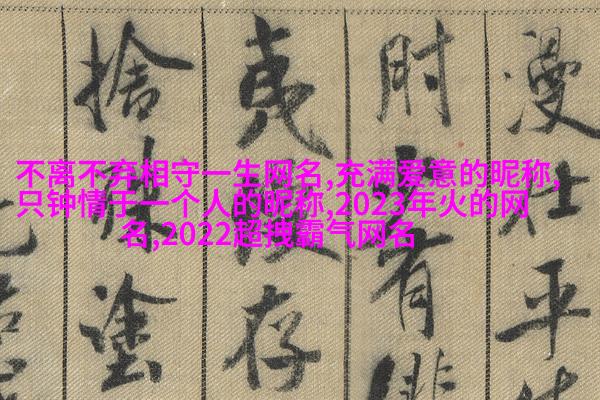 不离不弃相守一生网名,充满爱意的昵称,
只钟情于一个人的昵称,2023年火的网
名,2022超拽霸气网名
漫仕平
有
夷存
捨殊塗